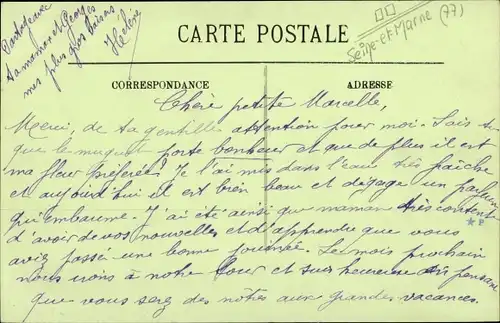 Partages avec
ta maman et Georges
mes plus gros baisers
Hélène
CARTE POSTALE
Seine-et-Marne (77)
CORRESPONDANCE
ADRESSE
Chère petite Marcelle,
Merci, de ta gentille attention pour moi. Sais tu
que le muguet porte bonheur et que de plus il est
ma fleur préférée? Je l'ai mis dans l'eau très fraîche
et aujourd'hui il est bien beau et dégage un parfum
qui embaume. J'ai été ainsi que maman très contente
d'avoir de vos nouvelles et d'apprendre que vous
aviez passé une bonne journée. Le mois prochain
nous irons à notre tour et suis heureuse en pensant
que vous serez des nôtres aux grandes vacances.